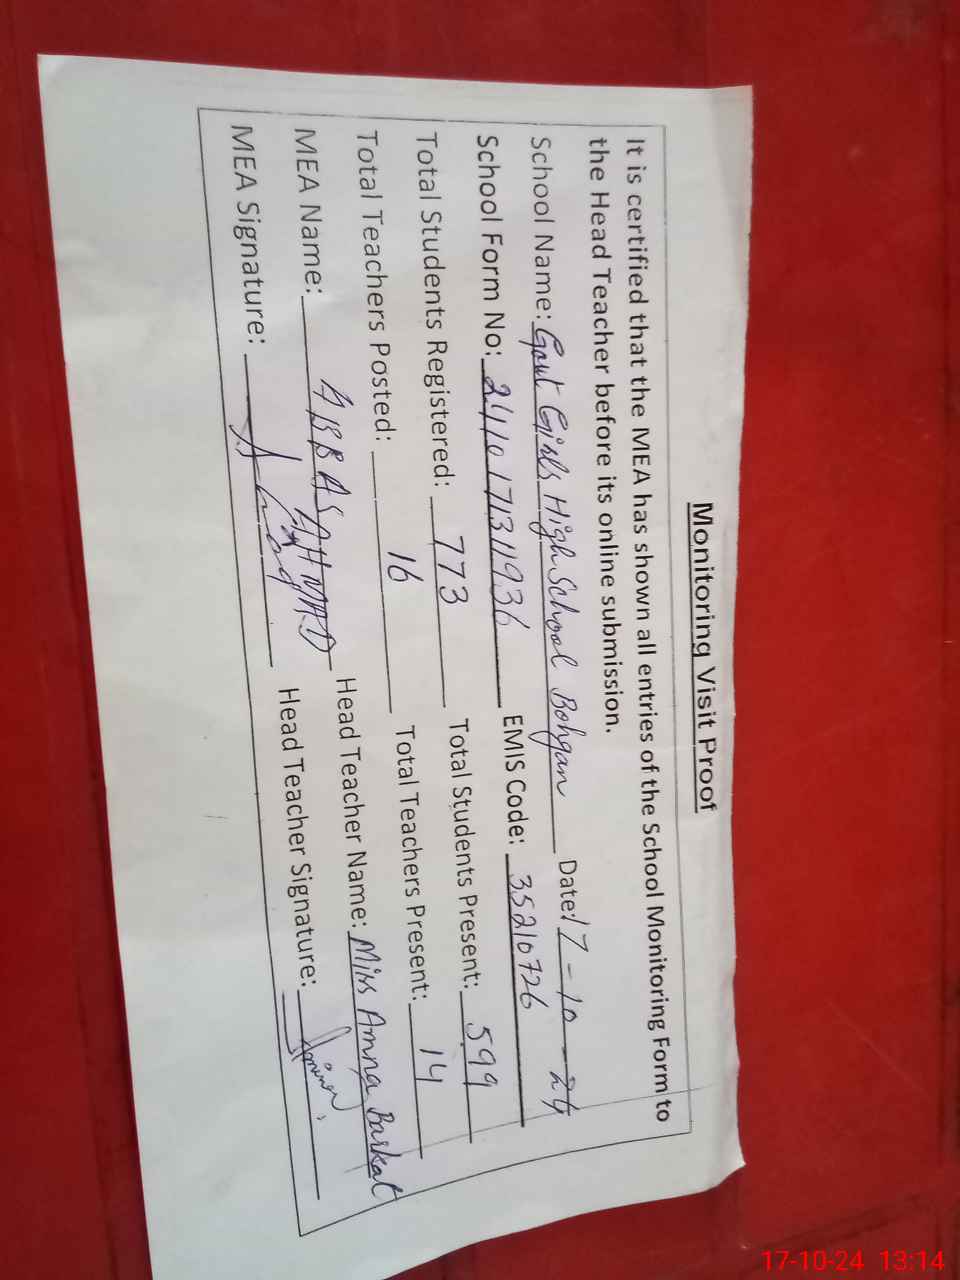 Monitoring Visit Proof
It is certified that the MEA has shown all entries of the School Monitoring Form to
the Head Teacher before its online submission.
School Name: Govt Girls High School Bohgan Date: 17-10-24
School Form No: 241017131936 EMIS Code: 35210726
Total Students Registered: 773 Total Students Present: 599
Total Teachers Posted: 16 Total Teachers Present: 14
MEA Name: ABBAS AHMAD Head Teacher Name: Miss Amna Barkat
MEA Signature: Head Teacher Signature:
17-10-24 13:14